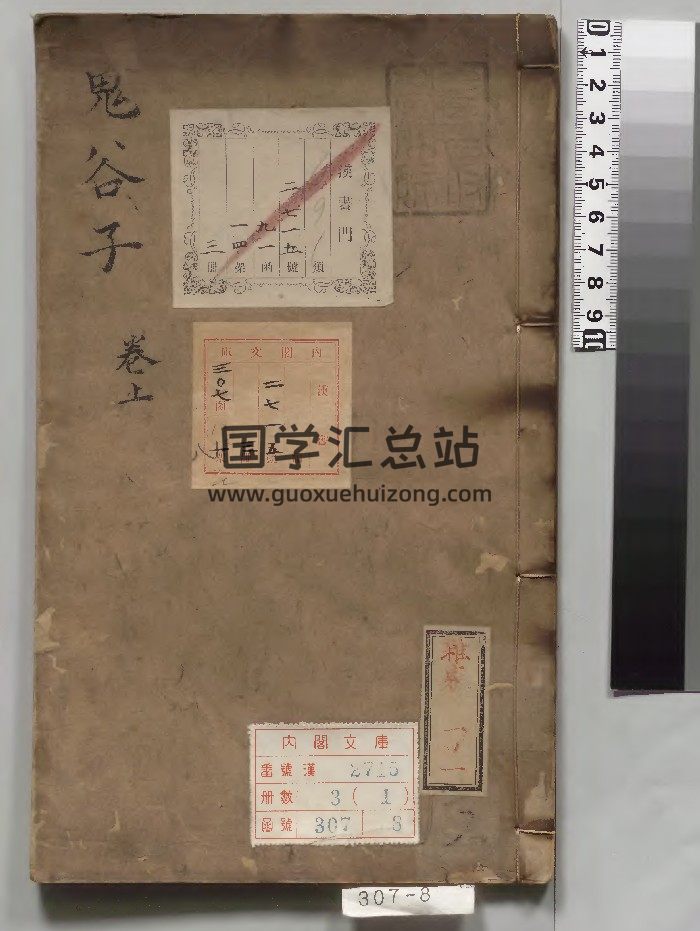 鬼谷子
卷上
漢書門
類
二七一五號
九一函
一四架
三冊
内閣文庫
漢
二七一五
三〇七函
国学汇总站
www.guoxuehuizong.com
内閣文庫
番號 漢 2715
冊數 3(1)
函號 307 8
307-8
0 1 2 3 4 5 6 7 8 9 10